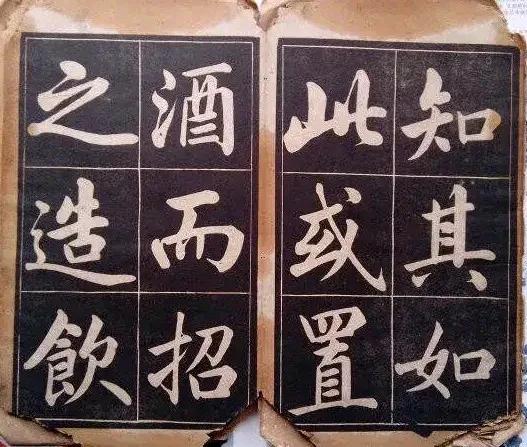 知其如
此或置
酒而招
之造飲